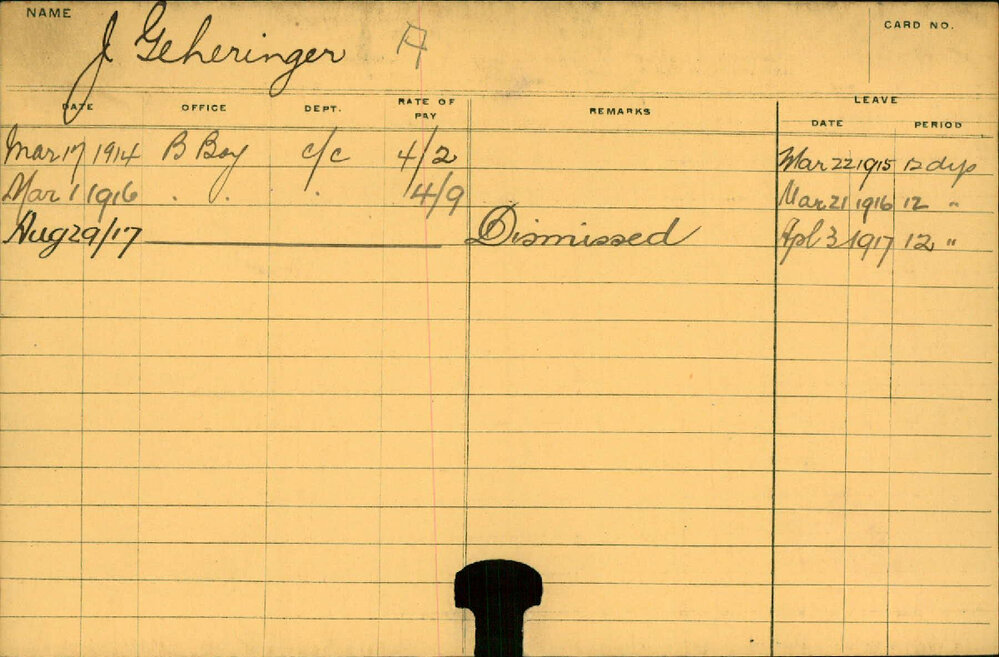 NAME
J Geheringer A
CARD NO.
DATE OFFICE DEPT. RATE OF PAY REMARKS LEAVE
DATE PERIOD
Mar 17 1914 B Boy c/c 4/2 Mar 22 1915 12 dys
Mar 1 1916 . . . 4/9 Mar 21 1916 12 "
Aug 29/17 Dismissed Apl 3 1917 12 "